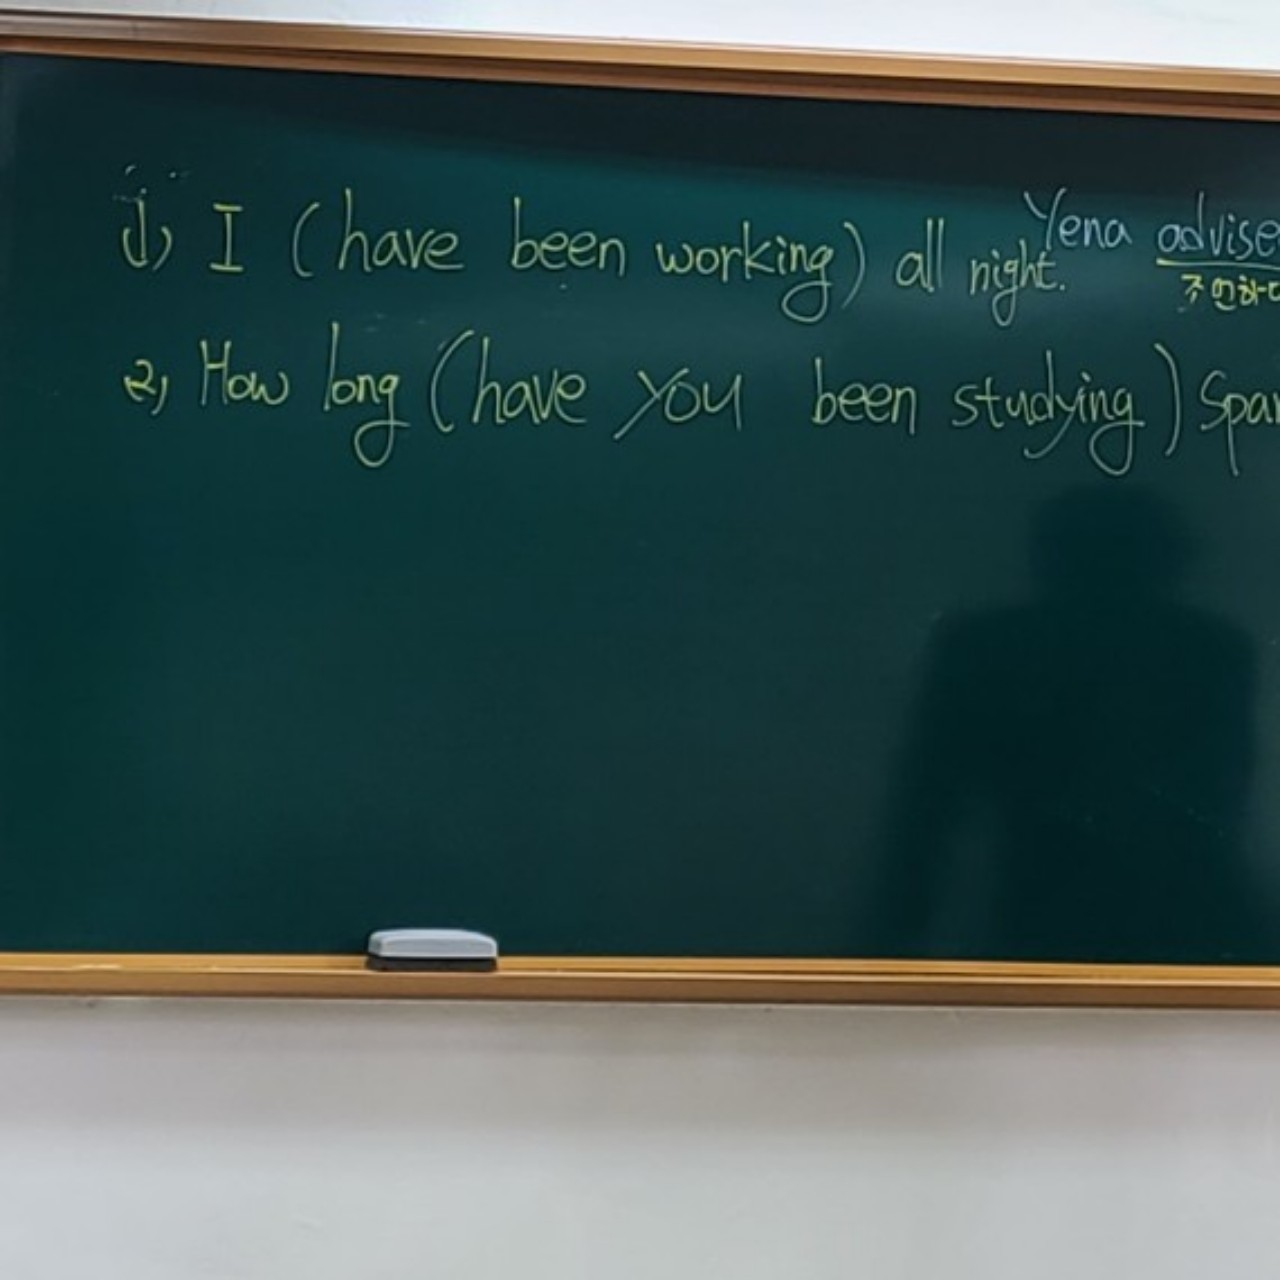 1) I (have been working) all night.
Yena advise
조언하다
2) How long (have you been studying) Span